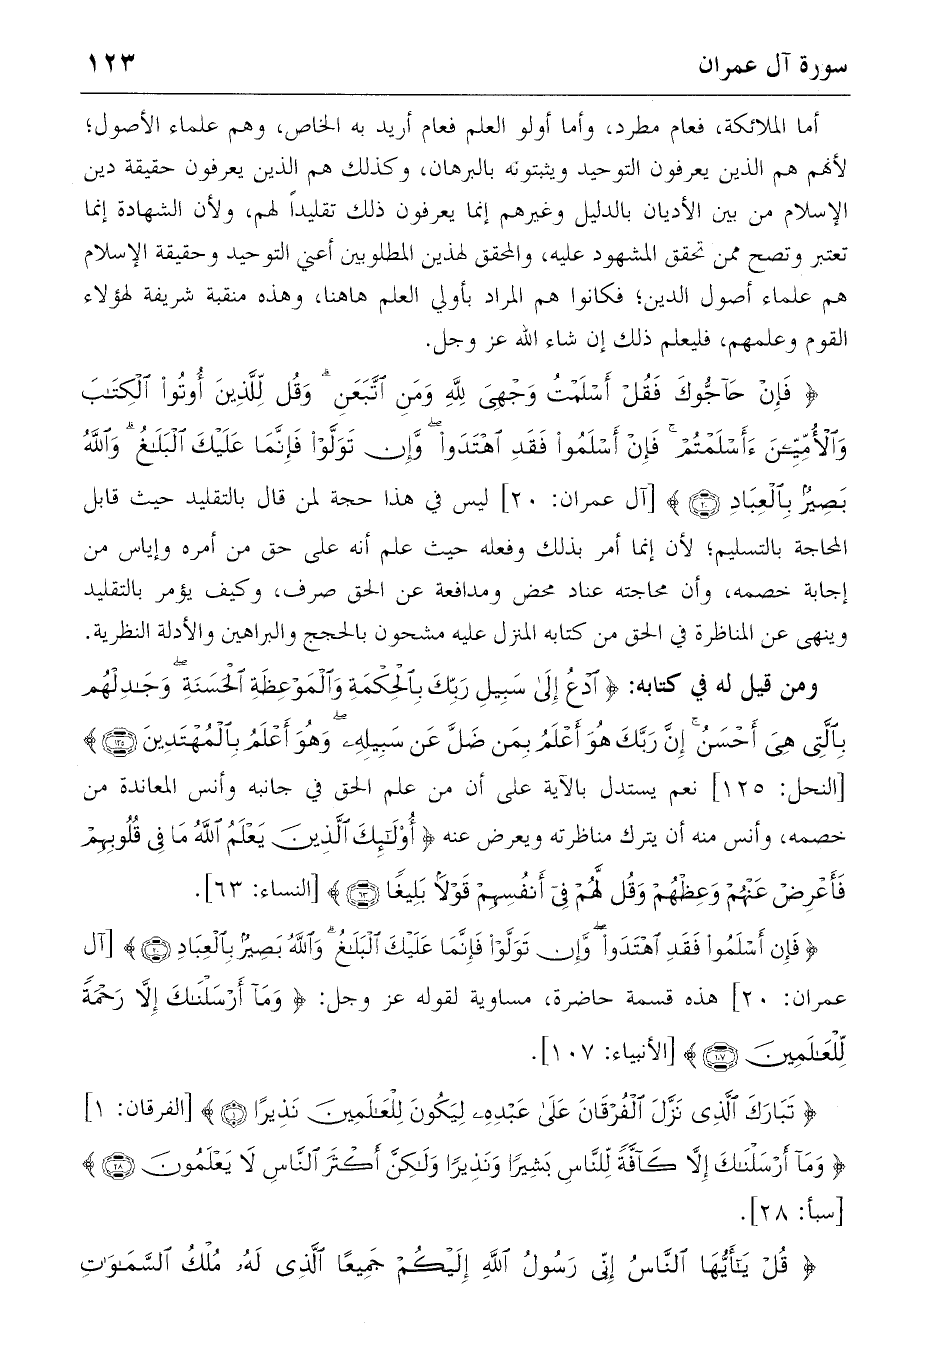 سورة آل عمران ١٢٣
أما الملائكة، فعام مطرد، وأما أولو العلم فعام أريد به الخاص، وهم علماء الأصول؛
لأنهم هم الذين يعرفون التوحيد ويثبتونه بالبرهان، وكذلك هم الذين يعرفون حقيقة دين
الإسلام من بين الأديان بالدليل وغيرهم إنما يعرفون ذلك تقليداً لهم، ولأن الشهادة إنما
تعتبر وتصح ممن تحقق المشهود عليه، والمحقق لهذين المطلوبين أعني التوحيد وحقيقة الإسلام
هم علماء أصول الدين؛ فكانوا هم المراد بأولي العلم هاهنا، وهذه منقبة شريفة لهؤلاء
القوم وعلمهم، فليعلم ذلك إن شاء الله عز وجل.
﴿ فَإِنْ حَآجُّوكَ فَقُلْ أَسْلَمْتُ وَجْهِىَ لِلَّهِ وَمَنِ ٱتَّبَعَنِ ۗ وَقُل لِّلَّذِينَ أُوتُوا۟ ٱلْكِتَـٰبَ
وَٱلْأُمِّيِّـۧنَ ءَأَسْلَمْتُمْ ۚ فَإِنْ أَسْلَمُوا۟ فَقَدِ ٱهْتَدَوا۟ ۖ وَّإِن تَوَلَّوْا۟ فَإِنَّمَا عَلَيْكَ ٱلْبَلَـٰغُ ۗ وَٱللَّهُ
بَصِيرٌۢ بِٱلْعِبَادِ ﴿٢٠﴾ ﴾ [آل عمران: ٢٠] ليس في هذا حجة لمن قال بالتقليد حيث قابل
المحاجة بالتسليم؛ لأن إنما أمر بذلك وفعله حيث علم أنه على حق من أمره وإياس من
إجابة خصمه، وأن محاجته عناد محض ومدافعة عن الحق صرف، وكيف يؤمر بالتقليد
وينهى عن المناظرة في الحق من كتابه المنزل عليه مشحون بالحجج والبراهين والأدلة النظرية.
ومن قيل له في كتابه: ﴿ ٱدْعُ إِلَىٰ سَبِيلِ رَبِّكَ بِٱلْحِكْمَةِ وَٱلْمَوْعِظَةِ ٱلْحَسَنَةِ ۖ وَجَـٰدِلْهُم
بِٱلَّتِى هِىَ أَحْسَنُ ۚ إِنَّ رَبَّكَ هُوَ أَعْلَمُ بِمَن ضَلَّ عَن سَبِيلِهِۦ ۖ وَهُوَ أَعْلَمُ بِٱلْمُهْتَدِينَ ﴿١٢٥﴾ ﴾
[النحل: ١٢٥] نعم يستدل بالآية على أن من علم الحق في جانبه وأنس المعاندة من
خصمه، وأنس منه أن يترك مناظرته ويعرض عنه ﴿ أُو۟لَـٰٓئِكَ ٱلَّذِينَ يَعْلَمُ ٱللَّهُ مَا فِى قُلُوبِهِمْ
فَأَعْرِضْ عَنْهُمْ وَعِظْهُمْ وَقُل لَّهُمْ فِىٓ أَنفُسِهِمْ قَوْلًۢا بَلِيغًا ﴿٦٣﴾ ﴾ [النساء: ٦٣].
﴿ فَإِن أَسْلَمُوا۟ فَقَدِ ٱهْتَدَوا۟ ۖ وَّإِن تَوَلَّوْا۟ فَإِنَّمَا عَلَيْكَ ٱلْبَلَـٰغُ ۗ وَٱللَّهُ بَصِيرٌۢ بِٱلْعِبَادِ ﴿٢٠﴾ ﴾ [آل
عمران: ٢٠] هذه قسمة حاضرة، مساوية لقوله عز وجل: ﴿ وَمَآ أَرْسَلْنَـٰكَ إِلَّا رَحْمَةً
لِّلْعَـٰلَمِينَ ﴿١٠٧﴾ ﴾ [الأنبياء: ١٠٧].
﴿ تَبَارَكَ ٱلَّذِى نَزَّلَ ٱلْفُرْقَانَ عَلَىٰ عَبْدِهِۦ لِيَكُونَ لِلْعَـٰلَمِينَ نَذِيرًا ﴿١﴾ ﴾ [الفرقان: ١]
﴿ وَمَآ أَرْسَلْنَـٰكَ إِلَّا كَآفَّةً لِّلنَّاسِ بَشِيرًا وَنَذِيرًا وَلَـٰكِنَّ أَكْثَرَ ٱلنَّاسِ لَا يَعْلَمُونَ ﴿٢٨﴾ ﴾
[سبأ: ٢٨].
﴿ قُلْ يَـٰٓأَيُّهَا ٱلنَّاسُ إِنِّى رَسُولُ ٱللَّهِ إِلَيْكُمْ جَمِيعًا ٱلَّذِى لَهُۥ مُلْكُ ٱلسَّمَـٰوَٰتِ